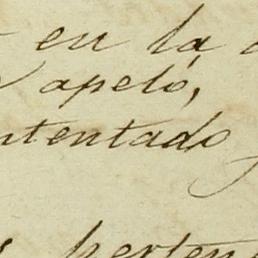 en la
apeló,
ntentado
perten